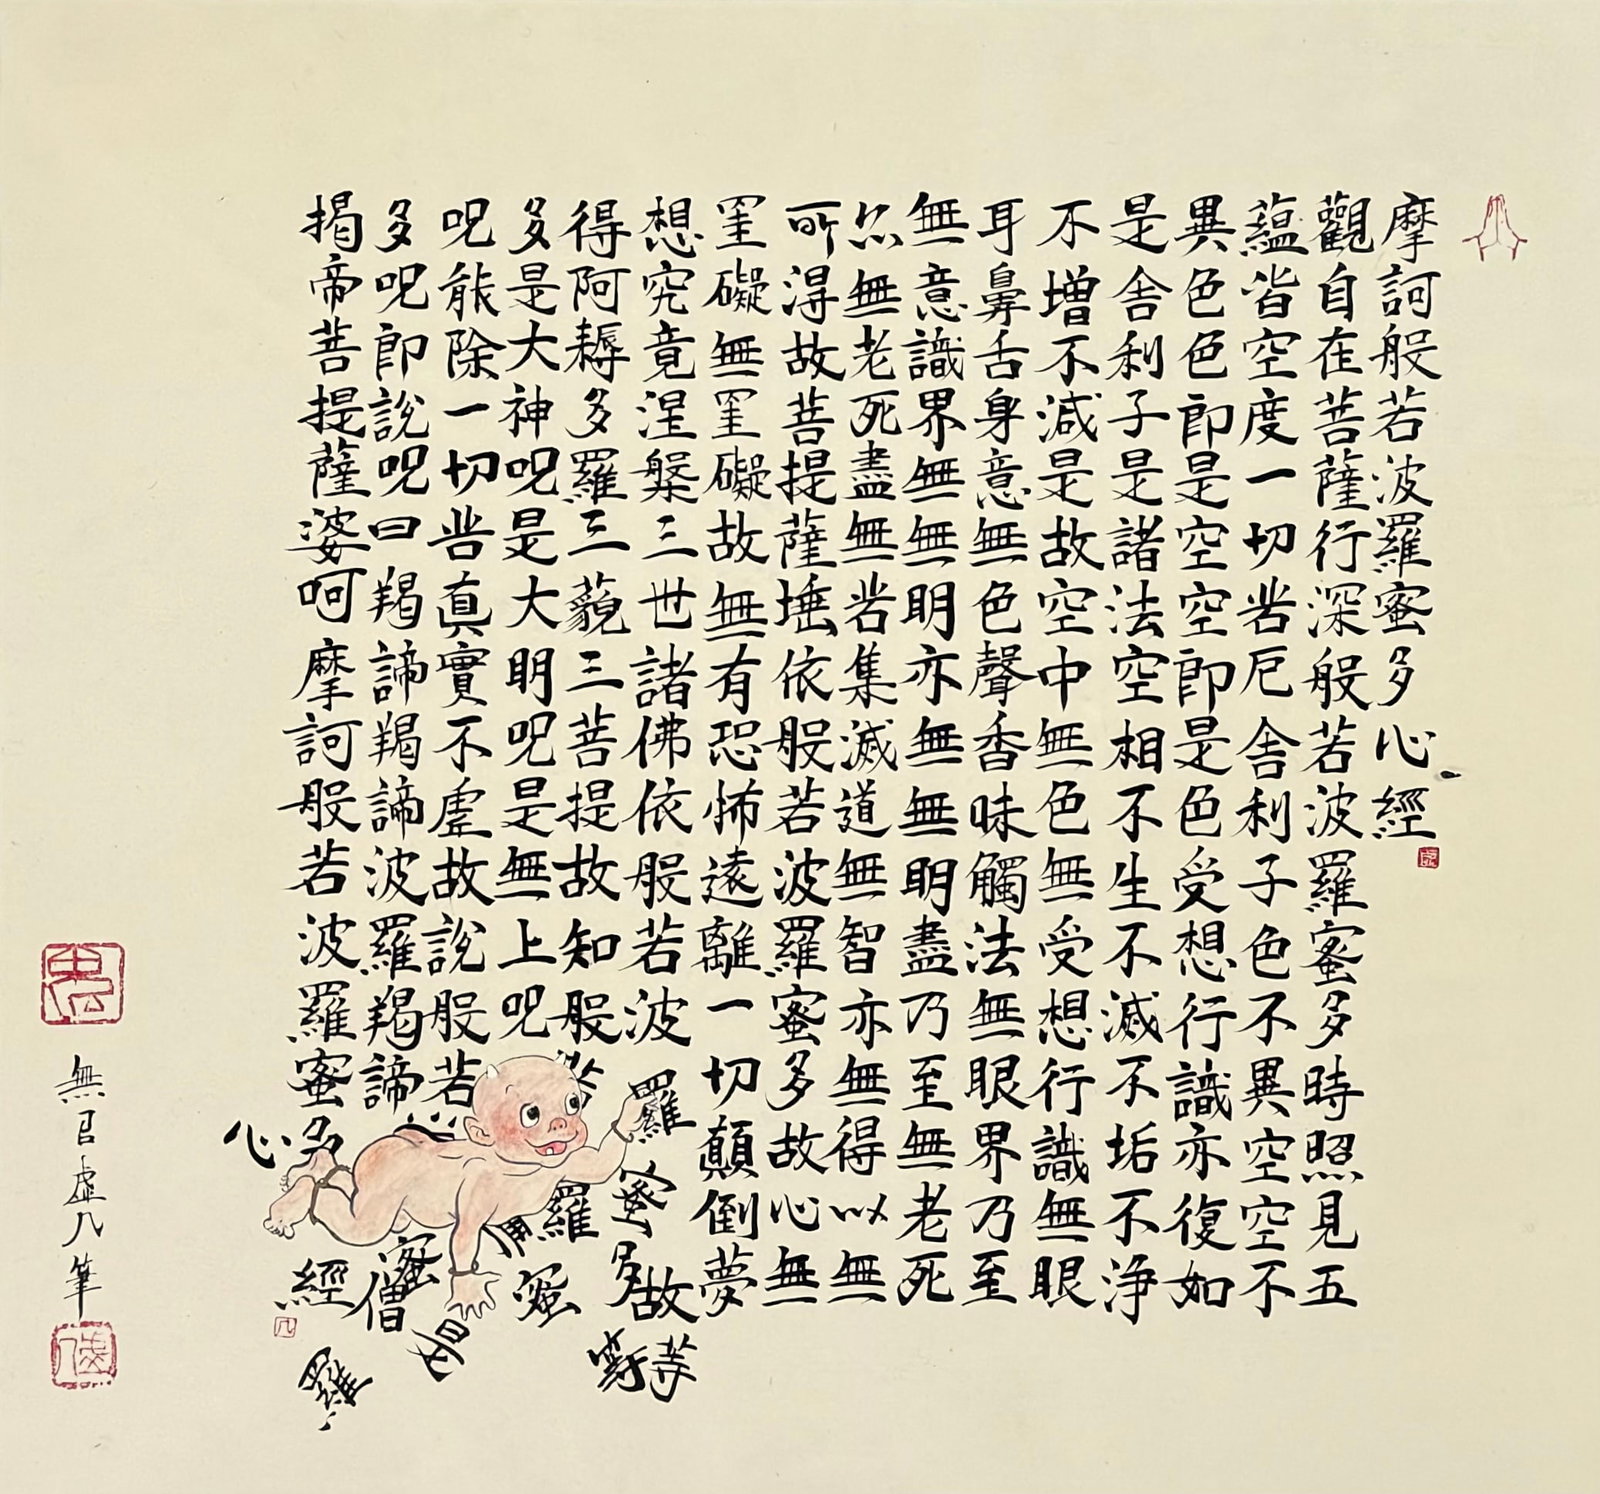 摩訶般若波羅蜜多心經
觀自在菩薩行深般若波羅蜜多時照見五
蘊皆空度一切苦厄舍利子色不異空空不
異色色即是空空即是色受想行識亦復如
是舍利子是諸法空相不生不滅不垢不淨
不增不減是故空中無色無受想行識無眼
耳鼻舌身意無色聲香味觸法無眼界乃至
無意識界無無明亦無無明盡乃至無老死
亦無老死盡無苦集滅道無智亦無得以無
所得故菩提薩埵依般若波羅蜜多故心無
罣礙無罣礙故無有恐怖遠離一切顛倒夢
想究竟涅槃三世諸佛依般若波羅蜜多故
得阿耨多羅三藐三菩提故知般若羅蜜
多是大神呪是大明呪是無上呪
呪能除一切苦真實不虛故說般若蜜
多呪即說呪曰羯諦羯諦波羅羯諦僧
揭帝菩提薩婆呵摩訶般若波羅蜜多
經
羅
心
無
虛凡筆